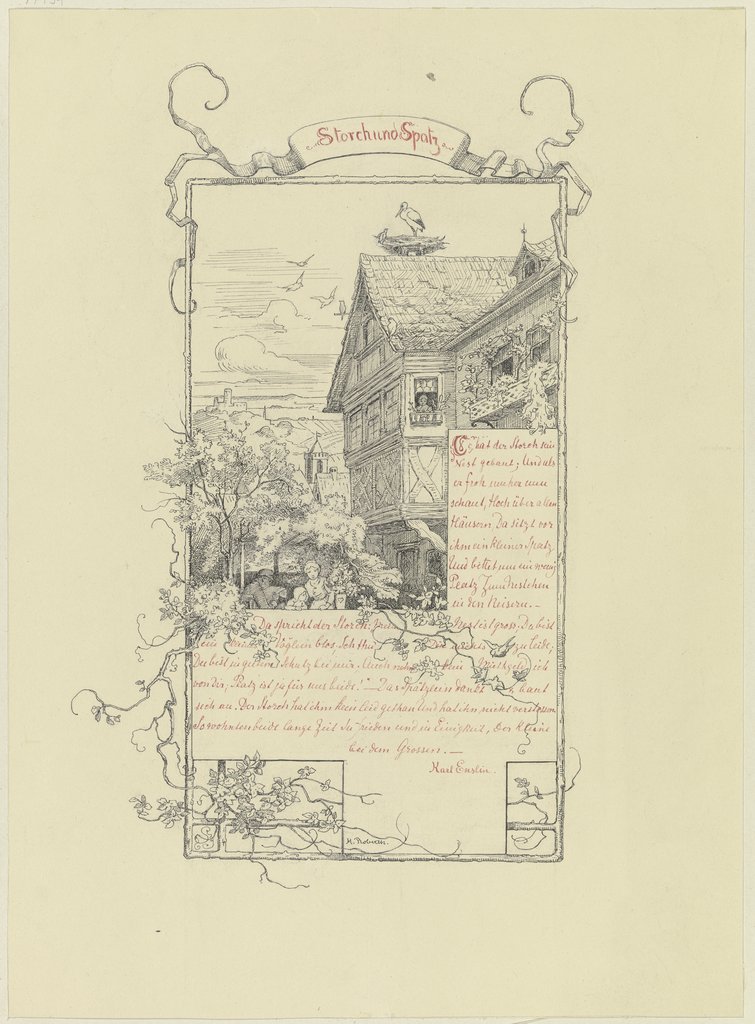 Storch und Spatz
Es hat der Storch sein
Nest gebaut; Und als
er froh umher nun
schaut, Hoch über allen
Häusern, Da sitzt vor
ihm ein kleiner Spatz
Und bittet um ein wenig
Platz Zum Nestchen
in den Reisern. –
Da spricht der Storch: Nest ist gross. Du bist
ein Vöglein blos, Ich thu zu leide;
Du bist in gutem Schutz bei mir. Auch kein Mietgeld ich
von dir, Platz ist ja für uns beide!" – Das Spätzlein dankt baut
sich an. Der Storch hat ihm kein Leid gethan Und hat ihn nicht verstossen
So wohnten beide lange Zeit In Frieden und in Einigkeit, Der Kleine
bei dem Grossen. –
Karl Enslin.